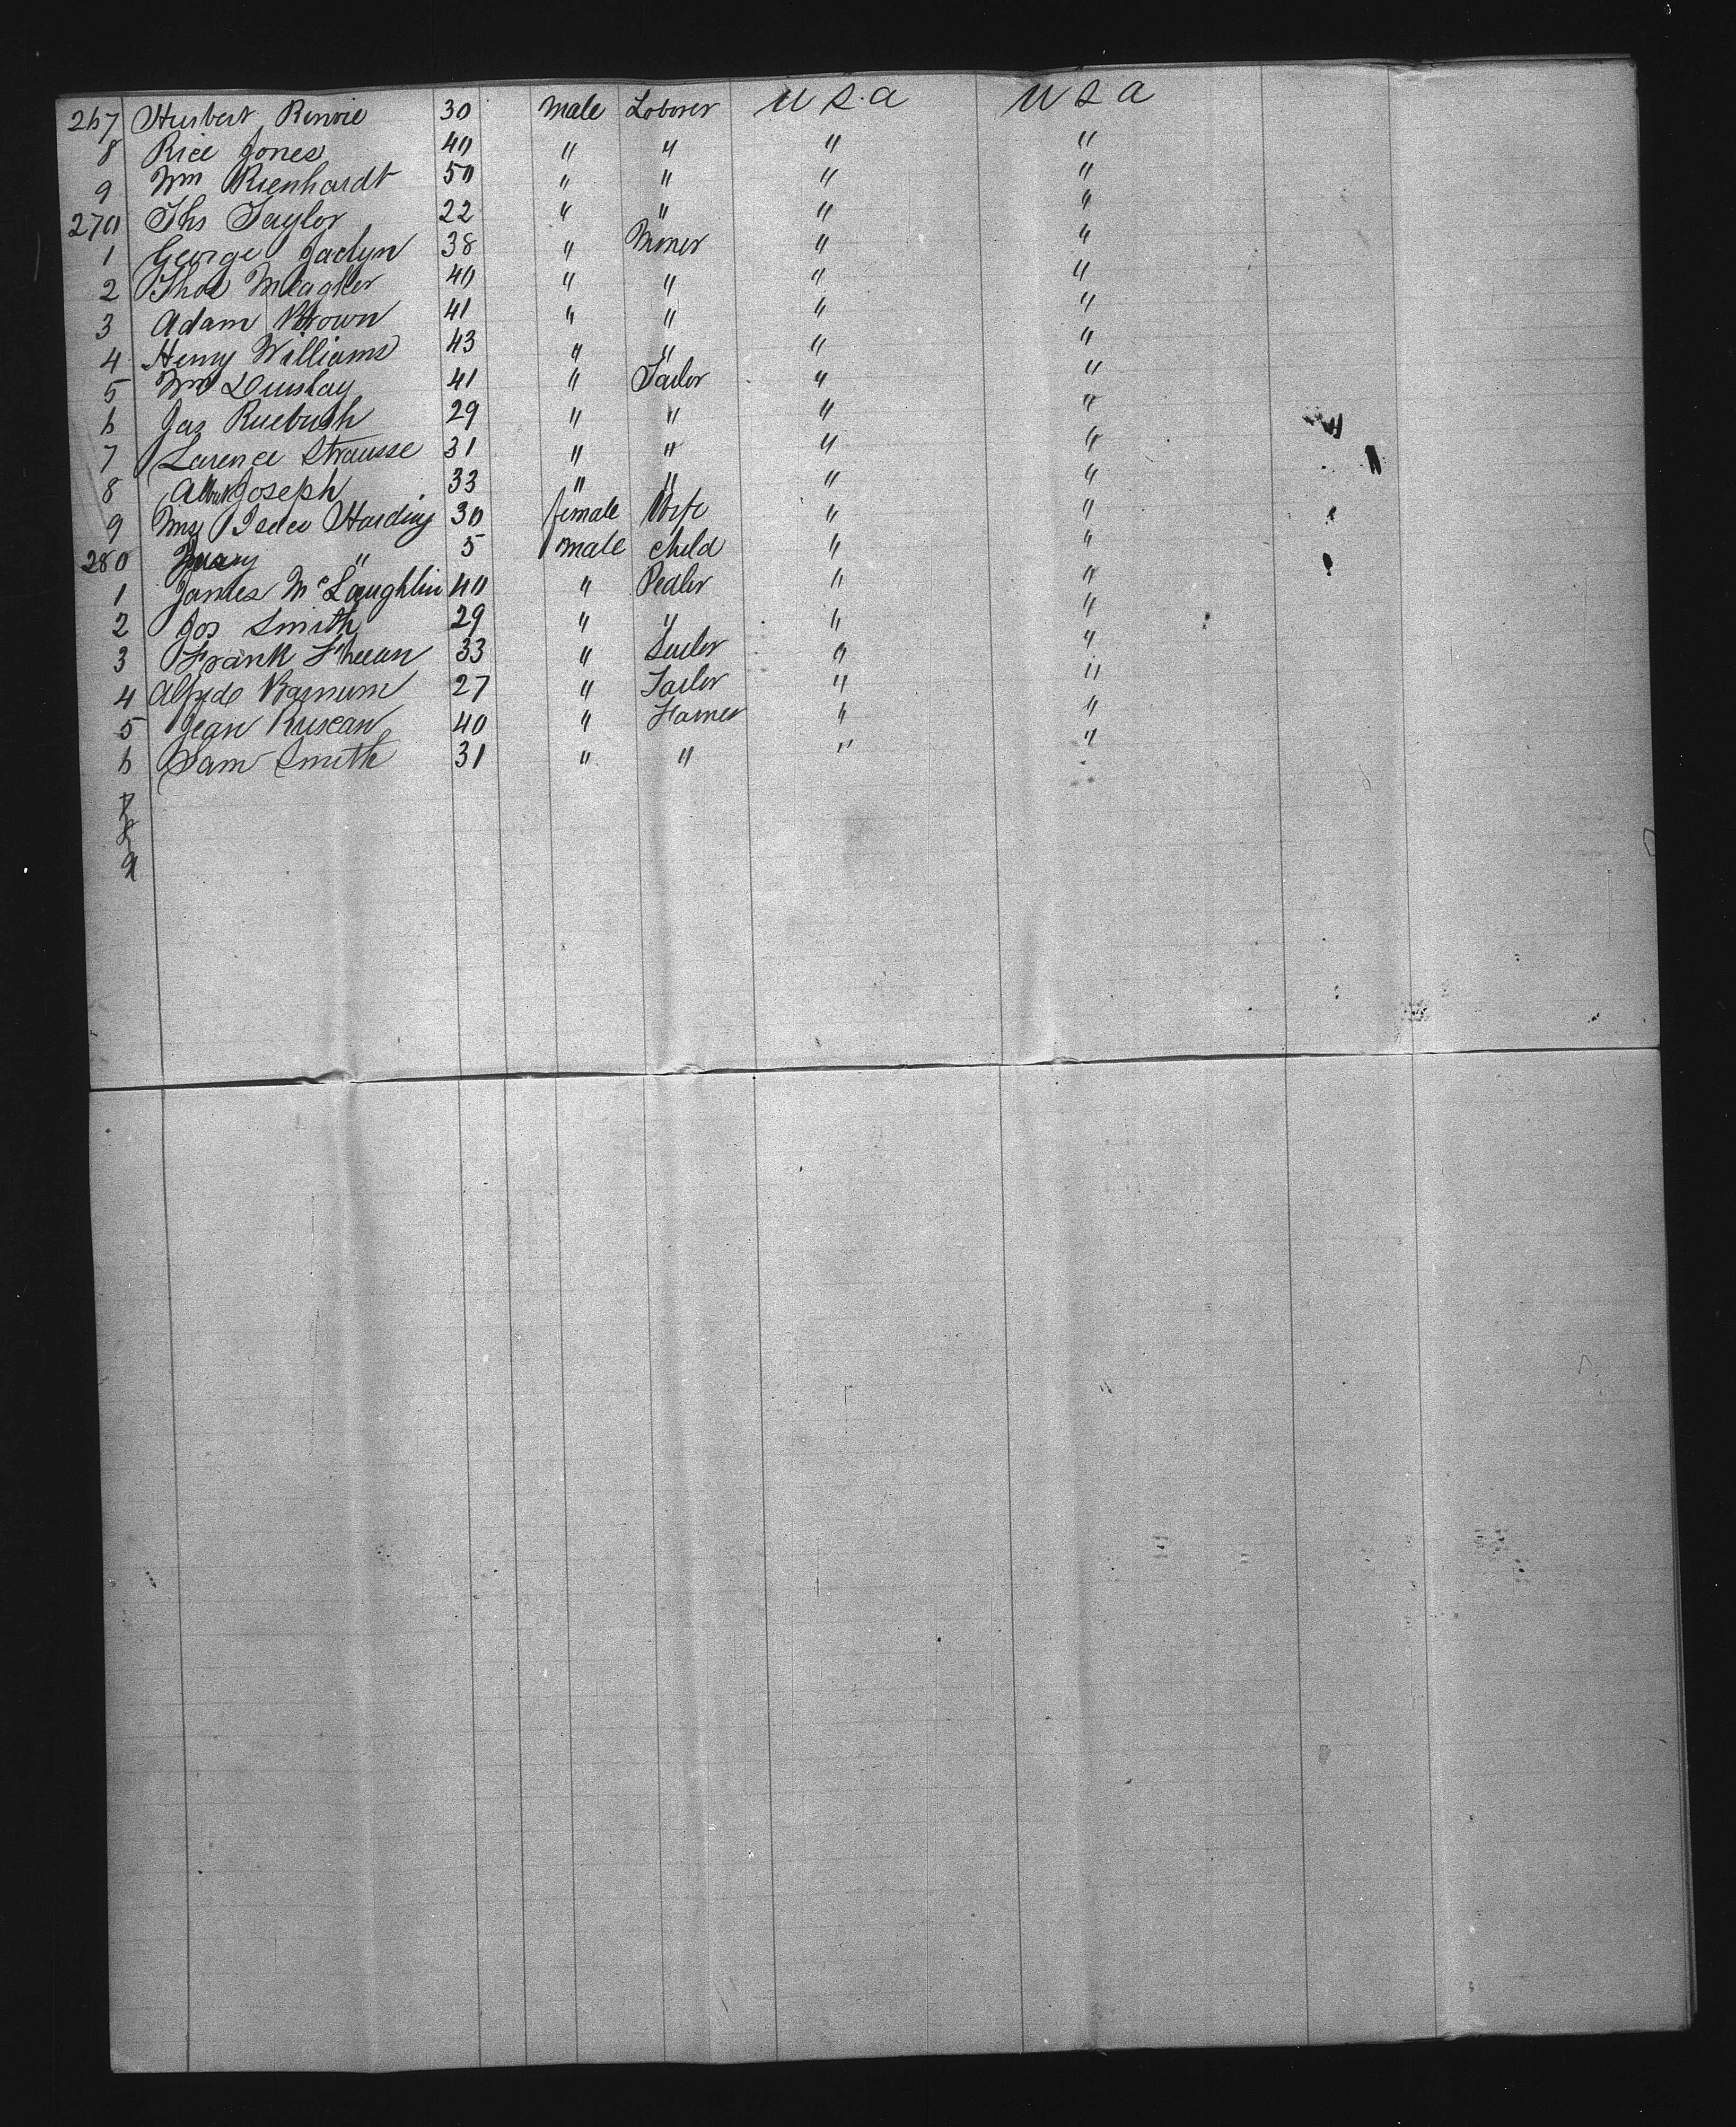 267 Hurbert Rennie 30 male Laborer U S. a U S a
8 Rice Jones 40 " " " "
9 Wm Rienhardt 50 " " " "
270 Ths Taylor 22 " " " "
1 George Jaclyn 38 " Miner " "
2 Thos Meagher 40 " " " "
3 Adam Brown 41 " " " "
4 Henry Williams 43 " " " "
5 Wm 41 " Tailor " "
6 Jas Ruebush 29 " " " "
7 Larence Strausse 31 " " " "
8 Albert Joseph 33 " " " "
9 Mrs Harding 30 female Wife " "
280 " 5 male child " "
1 James McLaughlin 40 " Pedler " "
2 Jos Smith 29 " " " "
3 Frank 33 " " "
4 Alfrde Barnum 27 " Tailor " "
5 Jean Rusean 40 " Farmer " "
6 Sam Smith 31 " " " "
7
8
9